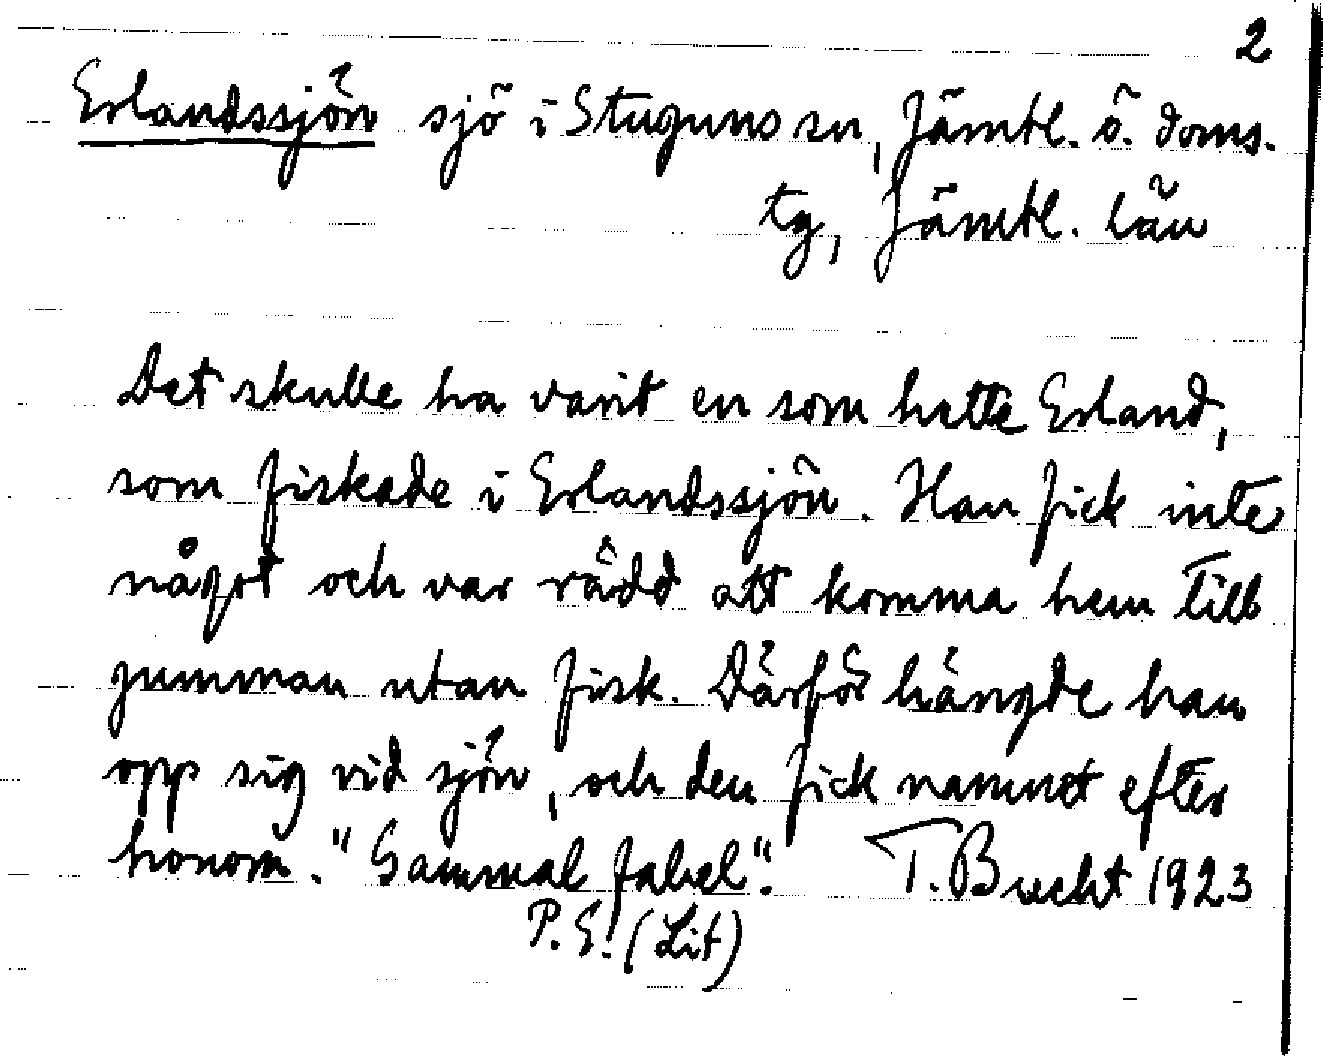 2
Erlandssjön sjö i Stuguns sn, Jämtl. ö. doms.
tg, Jämtl. län
Det skulle ha varit en som hette Erland,
som fiskade i Erlandssjön. Han fick inte
något och var rädd att komma hem till
gumman utan fisk. Därför hängde han
opp sig vid sjön, och den fick namnet efter
honom. "Gammal fabel". T. Bucht 1923
P.E. (Lit)